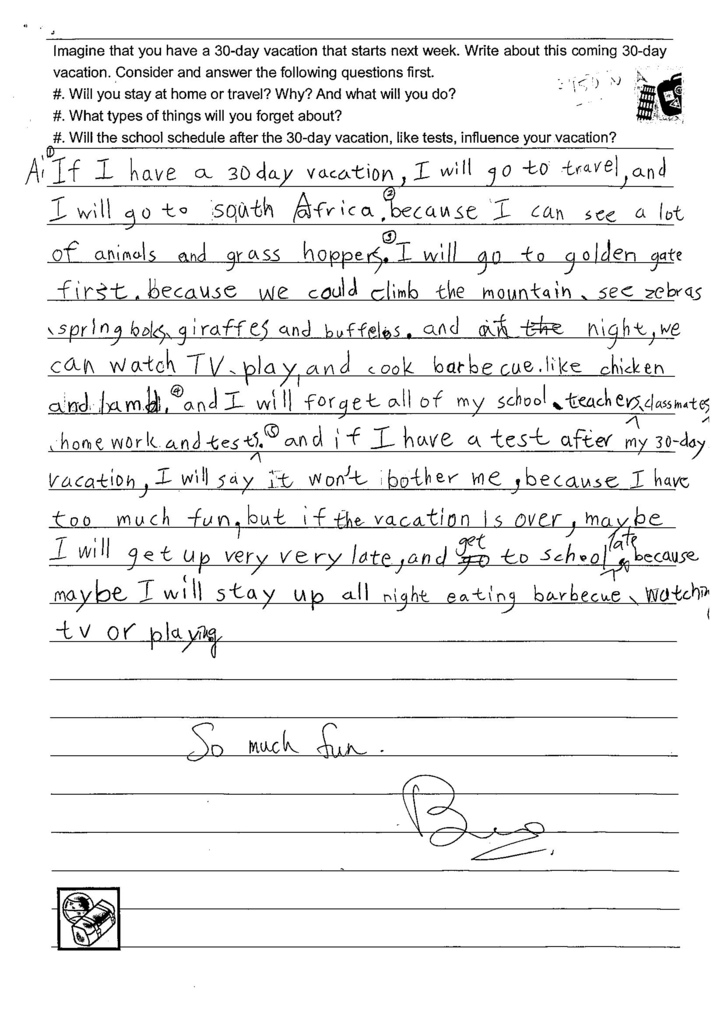 Imagine that you have a 30-day vacation that starts next week. Write about this coming 30-day
vacation. Consider and answer the following questions first.
#. Will you stay at home or travel? Why? And what will you do?
#. What types of things will you forget about?
#. Will the school schedule after the 30-day vacation, like tests, influence your vacation?
A: ① If I have a 30 day vacation, I will go to travel, and
I will go to south Africa, ② because I can see a lot
of animals and grass hoppers. ③ I will go to golden gate
first. because we could climb the mountain、see zebras
、spring boks, giraffes and buffelos. and at the night, we
can watch TV、play, and cook barbecue. like chicken
and lamb. ④ and I will forget all of my school、teachers、classmates
、home work and tests. ⑤ and if I have a test after my 30-day
vacation, I will say it won't bother me, because I have
too much fun, but if the vacation is over, maybe
I will get up very very late, and get to school late, because
maybe I will stay up all night eating barbecue、watchin
tv or playing
So much fun.